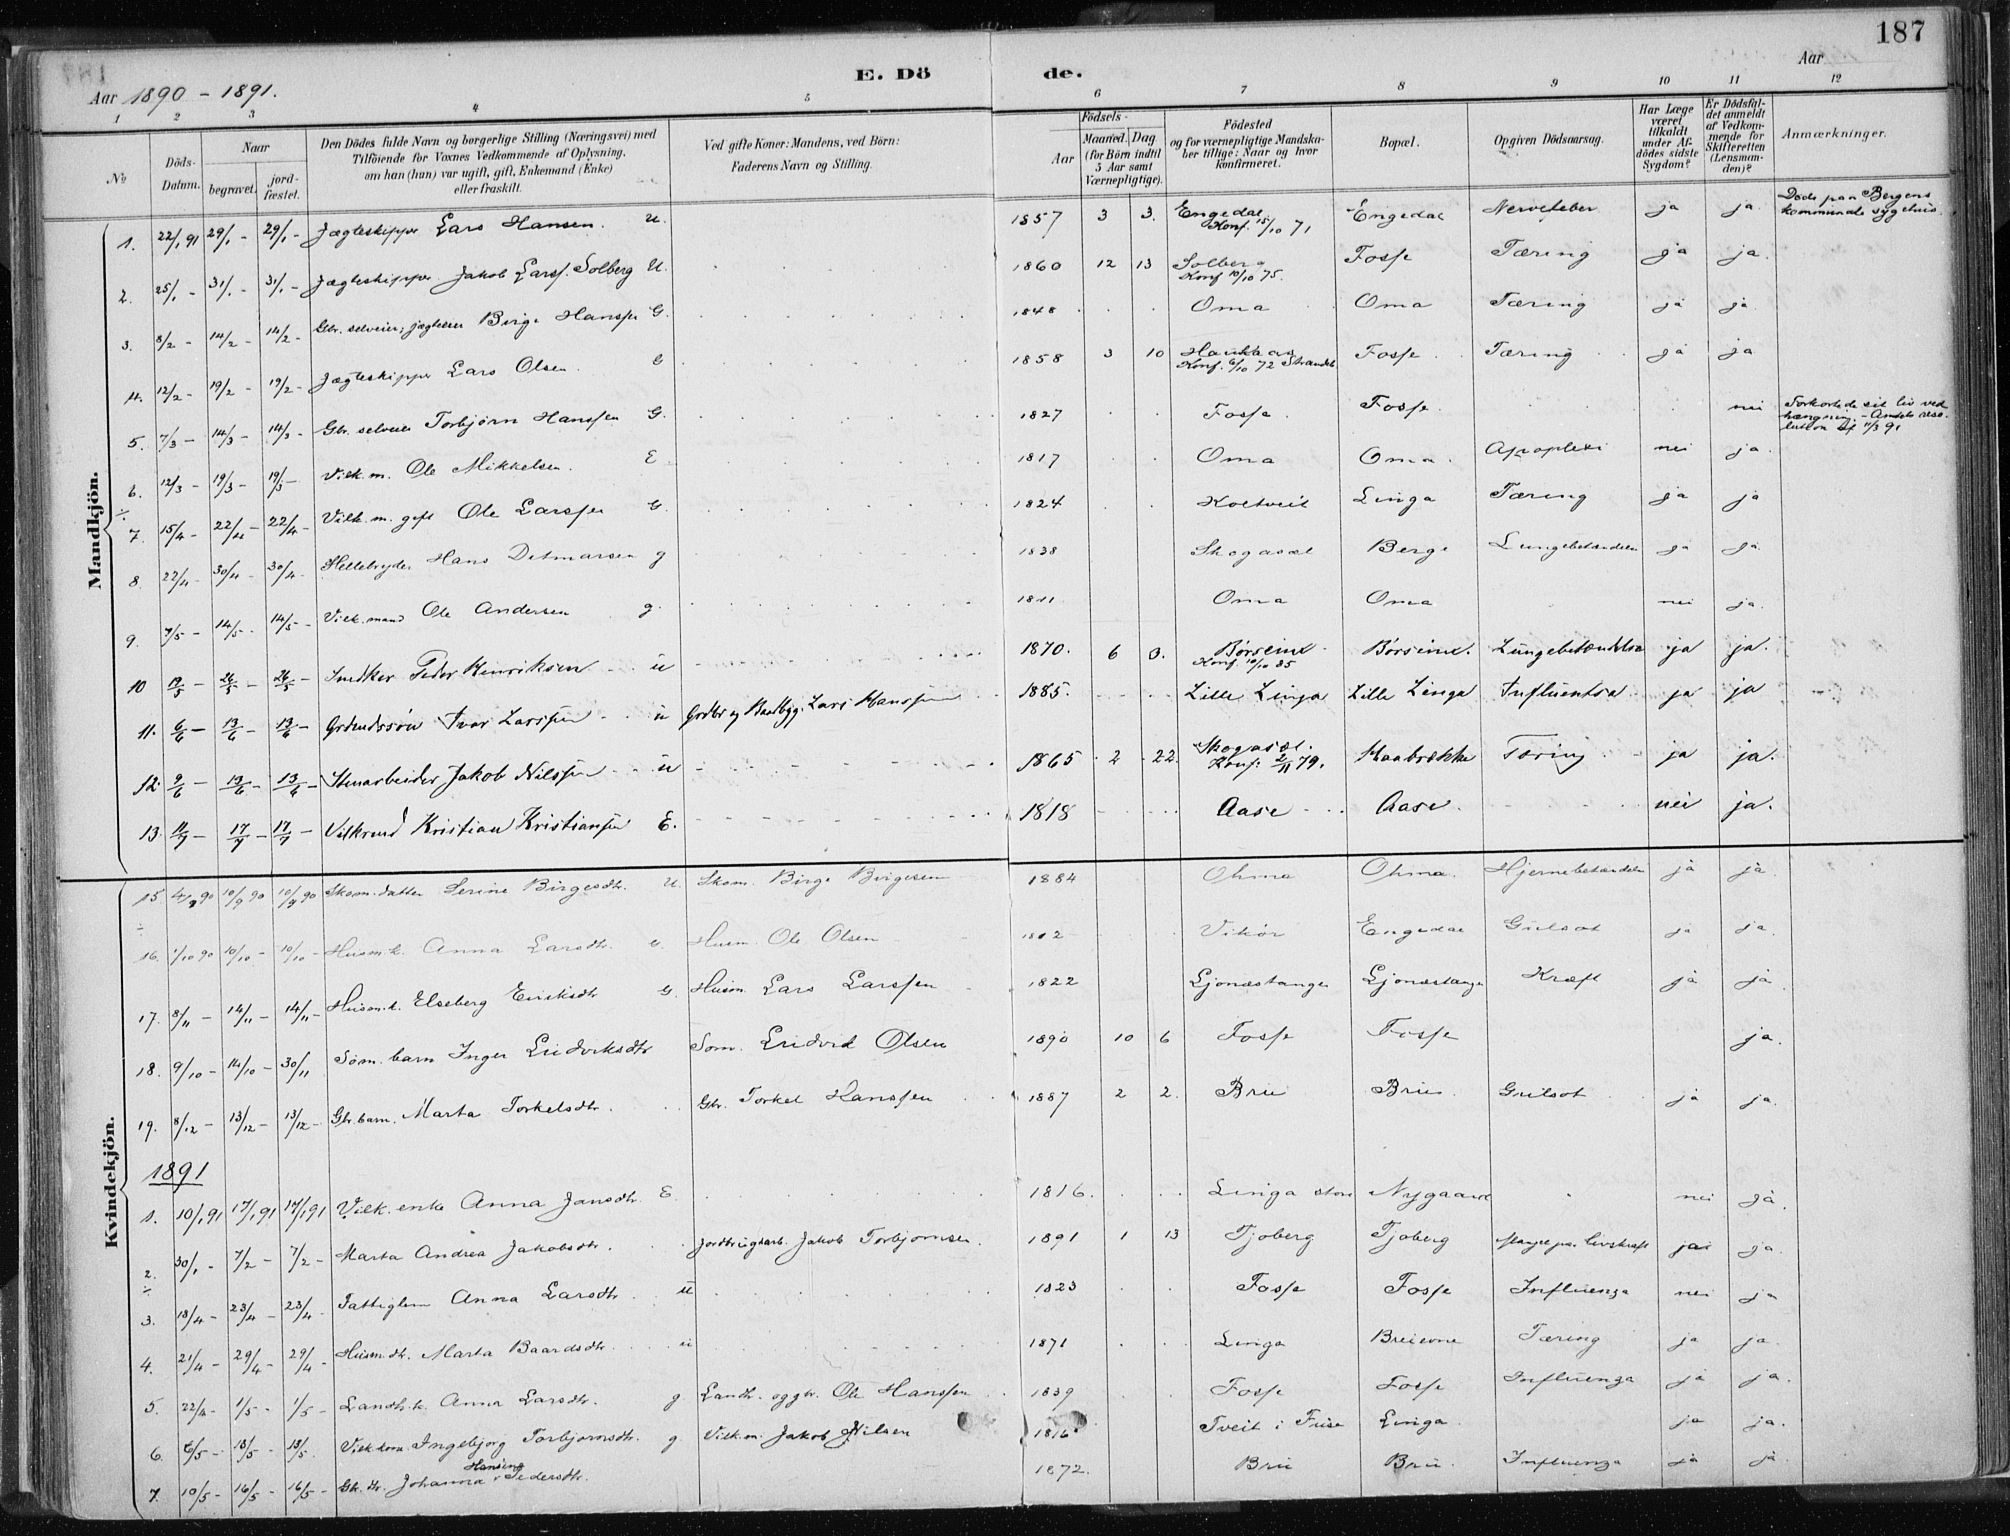 187
E. Dö de.
Aar 1890 - 1891.
Aar
1 2 3 4 5 6 7 8 9 10 11 12
№
Döds-Datum.
Naar
begravet.
jord-fæstet.
Den Dödes fulde Navn og borgerlige Stilling (Næringsvei) med
Tilföiende for Voxnes Vedkommende af Oplysning,
om han (hun) var ugift, gift, Enkemand (Enke)
eller fraskilt.
Ved gifte Koner: Mandens, ved Börn:
Faderens Navn og Stilling.
Födsels-
Aar
Maaned. Dag
(for Börn indtil
5 Aar samt
Værnepligtige).
Födested
og for værnepligtige Mandska-
ber tillige: Naar og hvor
konfirmeret.
Bopæl.
Opgiven Dödsaarsag.
Har Læge
været
tilkaldt
under Af-
dödes sidste
Sygdom?
Er Dödsfal-
det anmeldt
af Vedkom-
mende for
Skifteretten
(Lensman-
den)?
Anmærkninger.
Mandkjön.
1. 22/1 91 29/1 - 29/1 - Jægteskipper Lars Hansen. U. 1857 3 3. Engedal Konf. 15/10 71 Engedal Nervefeber ja ja. Døde paa Bergens kommunale sygehus.
2. 25/1 - 31/1 - 31/1 - Jægteskipper Jakob Larss. Solberg U. 1860 12 13 Solberg Konf 10/10 75. Fosse Tæring ja ja.
3. 8/2 - 14/2 - 14/2 - Gbr. selveier, jægteeier Birge Hansse G. 1848 Oma Oma Tæring ja ja.
4. 12/2 - 19/2 - 19/2 - Jægteskipper Lars Olsen. G 1858 3 10 Haukaas Konf. 6/10 72 Strandeb Fosse Tæring ja ja
5. 7/3 - 14/3 - 14/3 - Gbr. selveier Torbjørn Hanssen G. 1827 Fosse Fosse. nei Forkortede sit liv ved hængning - Amtets resolution af 11/3 91
6. 12/3 - 19/3 - 19/3 - Vilk. m. Ole Mikkelsen. E 1817 Oma Oma. Apoplexi nei ja.
7. 15/4 - 22/4 - 22/4 - Vilk. m. gift Ole Larssen G. 1824 Koltveit Linga Tæring ja ja
8. 22/4 - 30/4 - 30/4 - Hellebryder Hans Ditmarsen g 1838 Skogasæl Berge Lungebetændelse ja ja.
9. 7/5 - 14/5 - 14/5 - Vilk. mand Ole Andersen g. 1811 Oma Oma nei ja.
10 19/5 - 26/5 - 26/5 - Snedker Peder Henriksen u 1870. 6 3. Børseim Konf 10/10 85 Børseim. Lungebetændelse ja ja.
11. 6/6 - 13/6 - 13/6 - Grdmdssøn Ivar Larssen u Grdbr og Baadbygg. Lars Hanssen 1885. Lille Linga Lille Linga Influentsa ja ja
12. 9/6 - 13/6 - 13/6 - Stenarbeider Jakob Nilssen u 1865 2 22. Skogasæl. Konf: 2/11 79. Haabrekke Tæring ja ja.
13. 11/7 - 17/7 - 17/7 - Vilkrmd Kristian Kristiansen E. 1818 Aase Aase. nei ja.
Kvindekjön.
15. 4/9 90 10/9 90 10/9 90 Skom. datter Serine Birgesdtr. U. Skom. Birge Birgesen 1884 Ohma Ohma. Hjernebetændelse ja ja.
16. 1/10 90 10/10 - 10/10 - Husm. k. Anna Larsdtr. G. Husm. Ole Olsen 1802 Vikør Engedal Gulsot ja ja.
17. 8/11 - 14/11 - 14/11 - Husm. k. Elseberg Eriksdtr G. Husm. Lars Larssen 1822 Ljonæstangen Ljonæstangen Kræft ja ja.
18. 9/10 - 14/10 - 30/11 Søm. barn Inger Ludviksdtr Søm. Ludvik Olsen 1890 10 6 Fosse Fosse ja.
19. 8/12 - 13/12 - 13/12 - Gbr. barn. Marta Torkelsdtr. Gbr. Torkel Hanssen 1887 2 2. Brue Brue Gulsot ja ja.
1891
1. 10/1 91 17/1 91 17/1 91 Vilk. enke Anna Jansdtr. E. 1816. Linga store Nygaard nei ja.
2. 30/1 - 7/2 - 7/2 - Marta Andrea Jakobsdtr. Jordbrugsarb. Jakob Torbjørnsen. 1891 1 13 Tjoberg Tjoberg Mangel paa livskraft ja ja.
3. 18/4 - 23/4 - 23/4 - Fattiglem Anna Larsdtr. u 1823 Fosse Fosse Influenza nei ja
4. 21/4 - 29/4 - 29/4 - Husm. dtr. Marta Baardsdtr. u 1871 Linga Breievne Tæring ja ja.
5. 22/4 - 1/5 - 1/5 - Landh. k. Anna Larsdtr. g Landh. og gbr. Ole Hanssen 1839 Fosse Fosse Influenza ja ja.
6. 6/5 - 13/5 - 13/5. Vilk. kone. Ingebjorg Torbjørnsdtr. g. Vilk. m. Jakob Nilsen 1816 Tveit i Fuse Linga. ja ja.
7. 10/5 - 16/5 - 16/5 - Gbr. dtr. Johanna Hansine Pedersdtr. 1872. Brue Brue. Influenza ja ja.